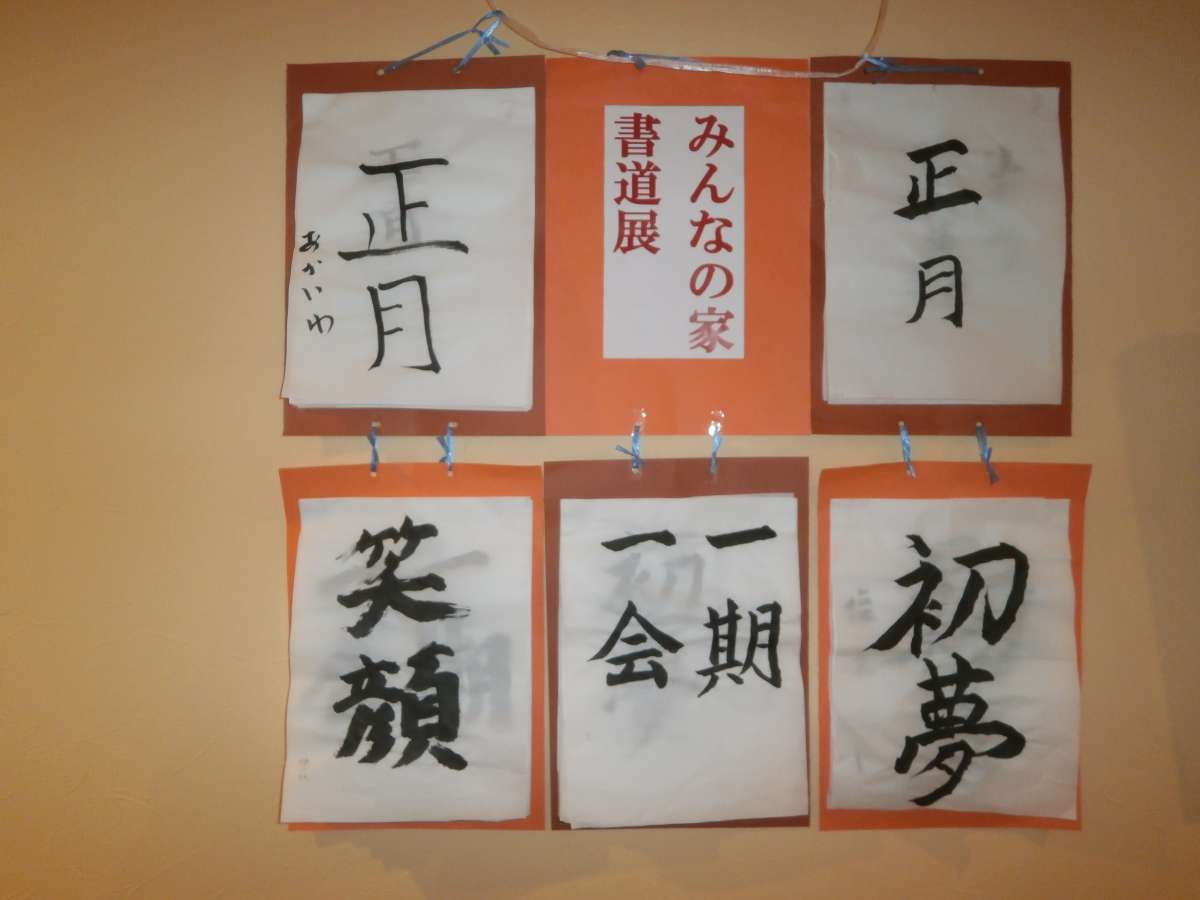 みんなの家
書道展
正月
正月
おかいわ
初夢
一期
一会
笑顔